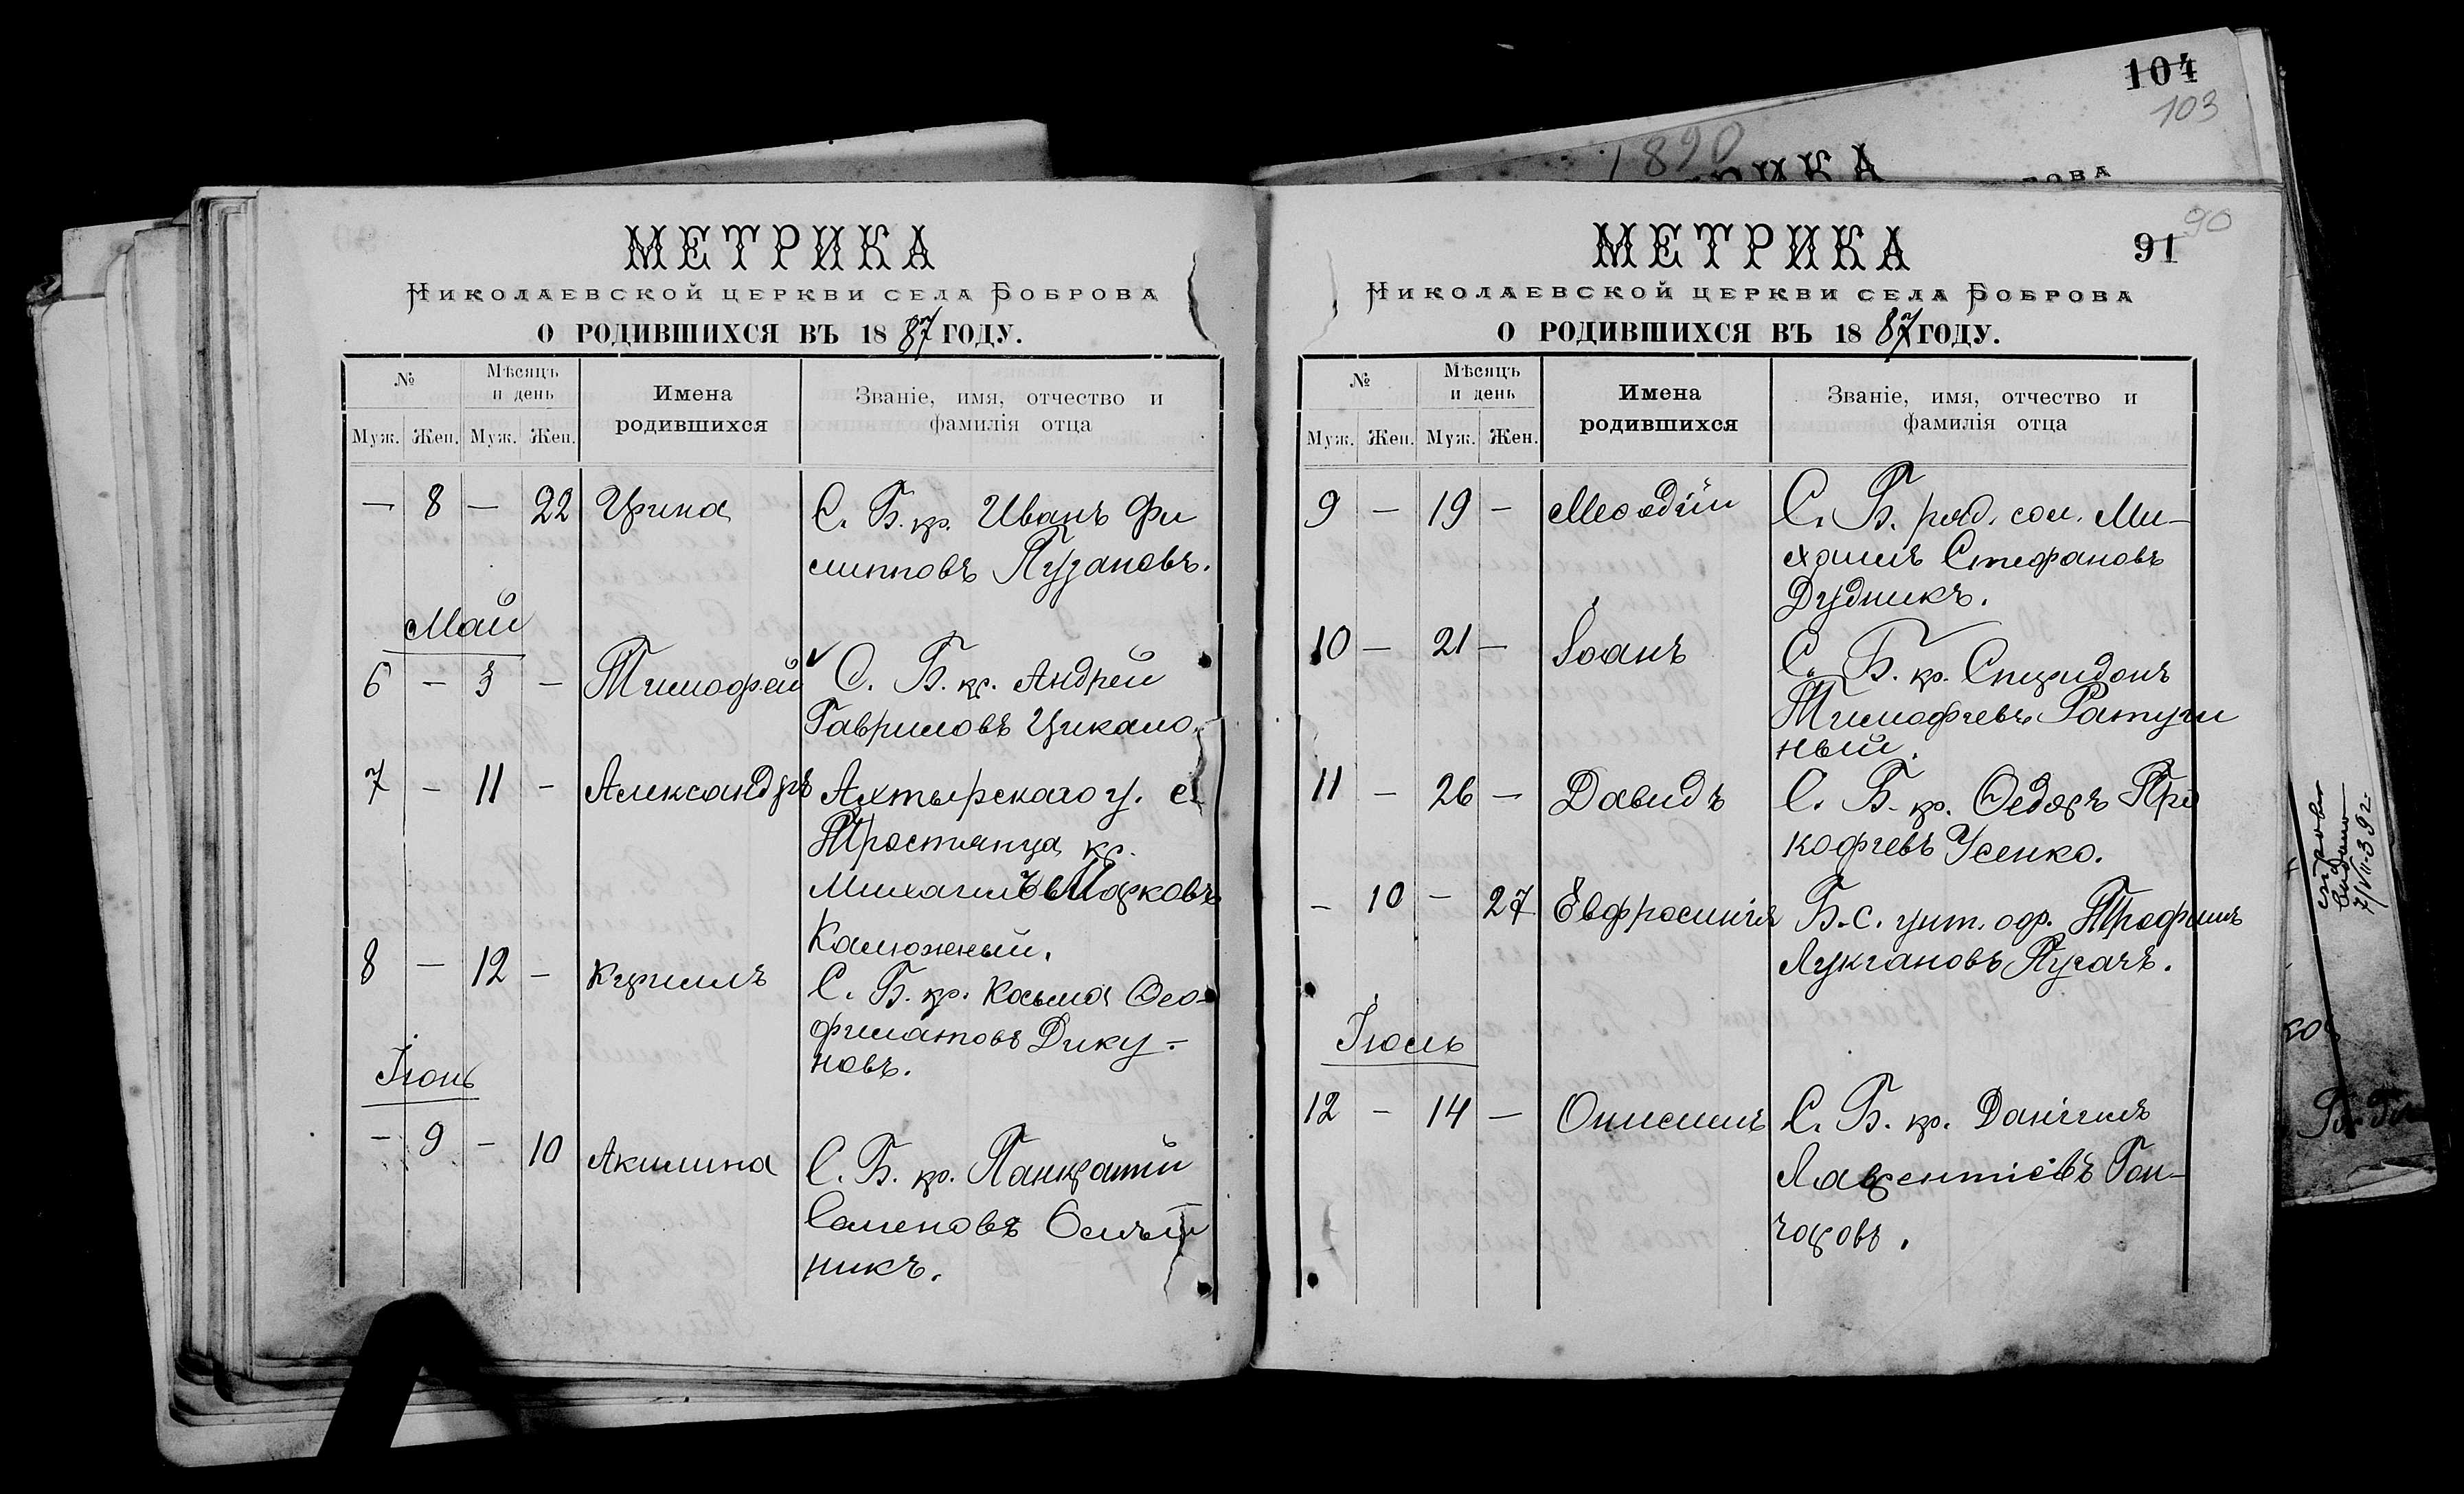 104
103
1890
МЕТРИКА
НИКОЛАЕВСКОЙ ЦЕРКВИ СЕЛА БОБРОВА
О РОДИВШИХСЯ ВЪ 1887 ГОДУ.
№
Мѣсяцъ и день
Имена родившихся
Званіе, имя, отчество и фамилія отца
Муж. Жен. Муж. Жен.
— 8 — 22 Ирина С. Б. кр. Иванъ Фи
липповъ Пузановъ.
Май
6 — 3 — Тимофей С. Б. кр. Андрей
Гавриловъ Цикало.
7 — 11 — Александръ Ахтырскаго у. с.
Тростянца кр.
Михаилъ Марковъ
Калюжный.
8 — 12 — Кириллъ С. Б. кр. Косьма Ѳео-
филатовъ Дику-
новъ.
Іюнь
— 9 — 10 Акилина С. Б. кр. Панкратій
Семеновъ
никъ.
МЕТРИКА
90
91
НИКОЛАЕВСКОЙ ЦЕРКВИ СЕЛА БОБРОВА
О РОДИВШИХСЯ ВЪ 1887 ГОДУ.
№
Мѣсяцъ и день
Имена родившихся
Званіе, имя, отчество и фамилія отца
Муж. Жен. Муж. Жен.
9 — 19 — Меѳодій С. Б. ряд. сол. Ми-
хаилъ Стефановъ
Дудникъ.
10 — 21 — Іоанъ С. Б. кр. Спиридонъ
Тимофеевъ Ратуш
ный.
11 — 26 — Давидъ С. Б. кр. Ѳедоръ Про
кофіевъ Усенко.
— 10 — 27 Евфросинія Б. с. унт. оф. Трофимъ
Лукіановъ Пугачъ.
Іюль
12 — 14 — Онисимъ С. Б. кр. Даніилъ
Лаврентіевъ Гон-
чаровъ.